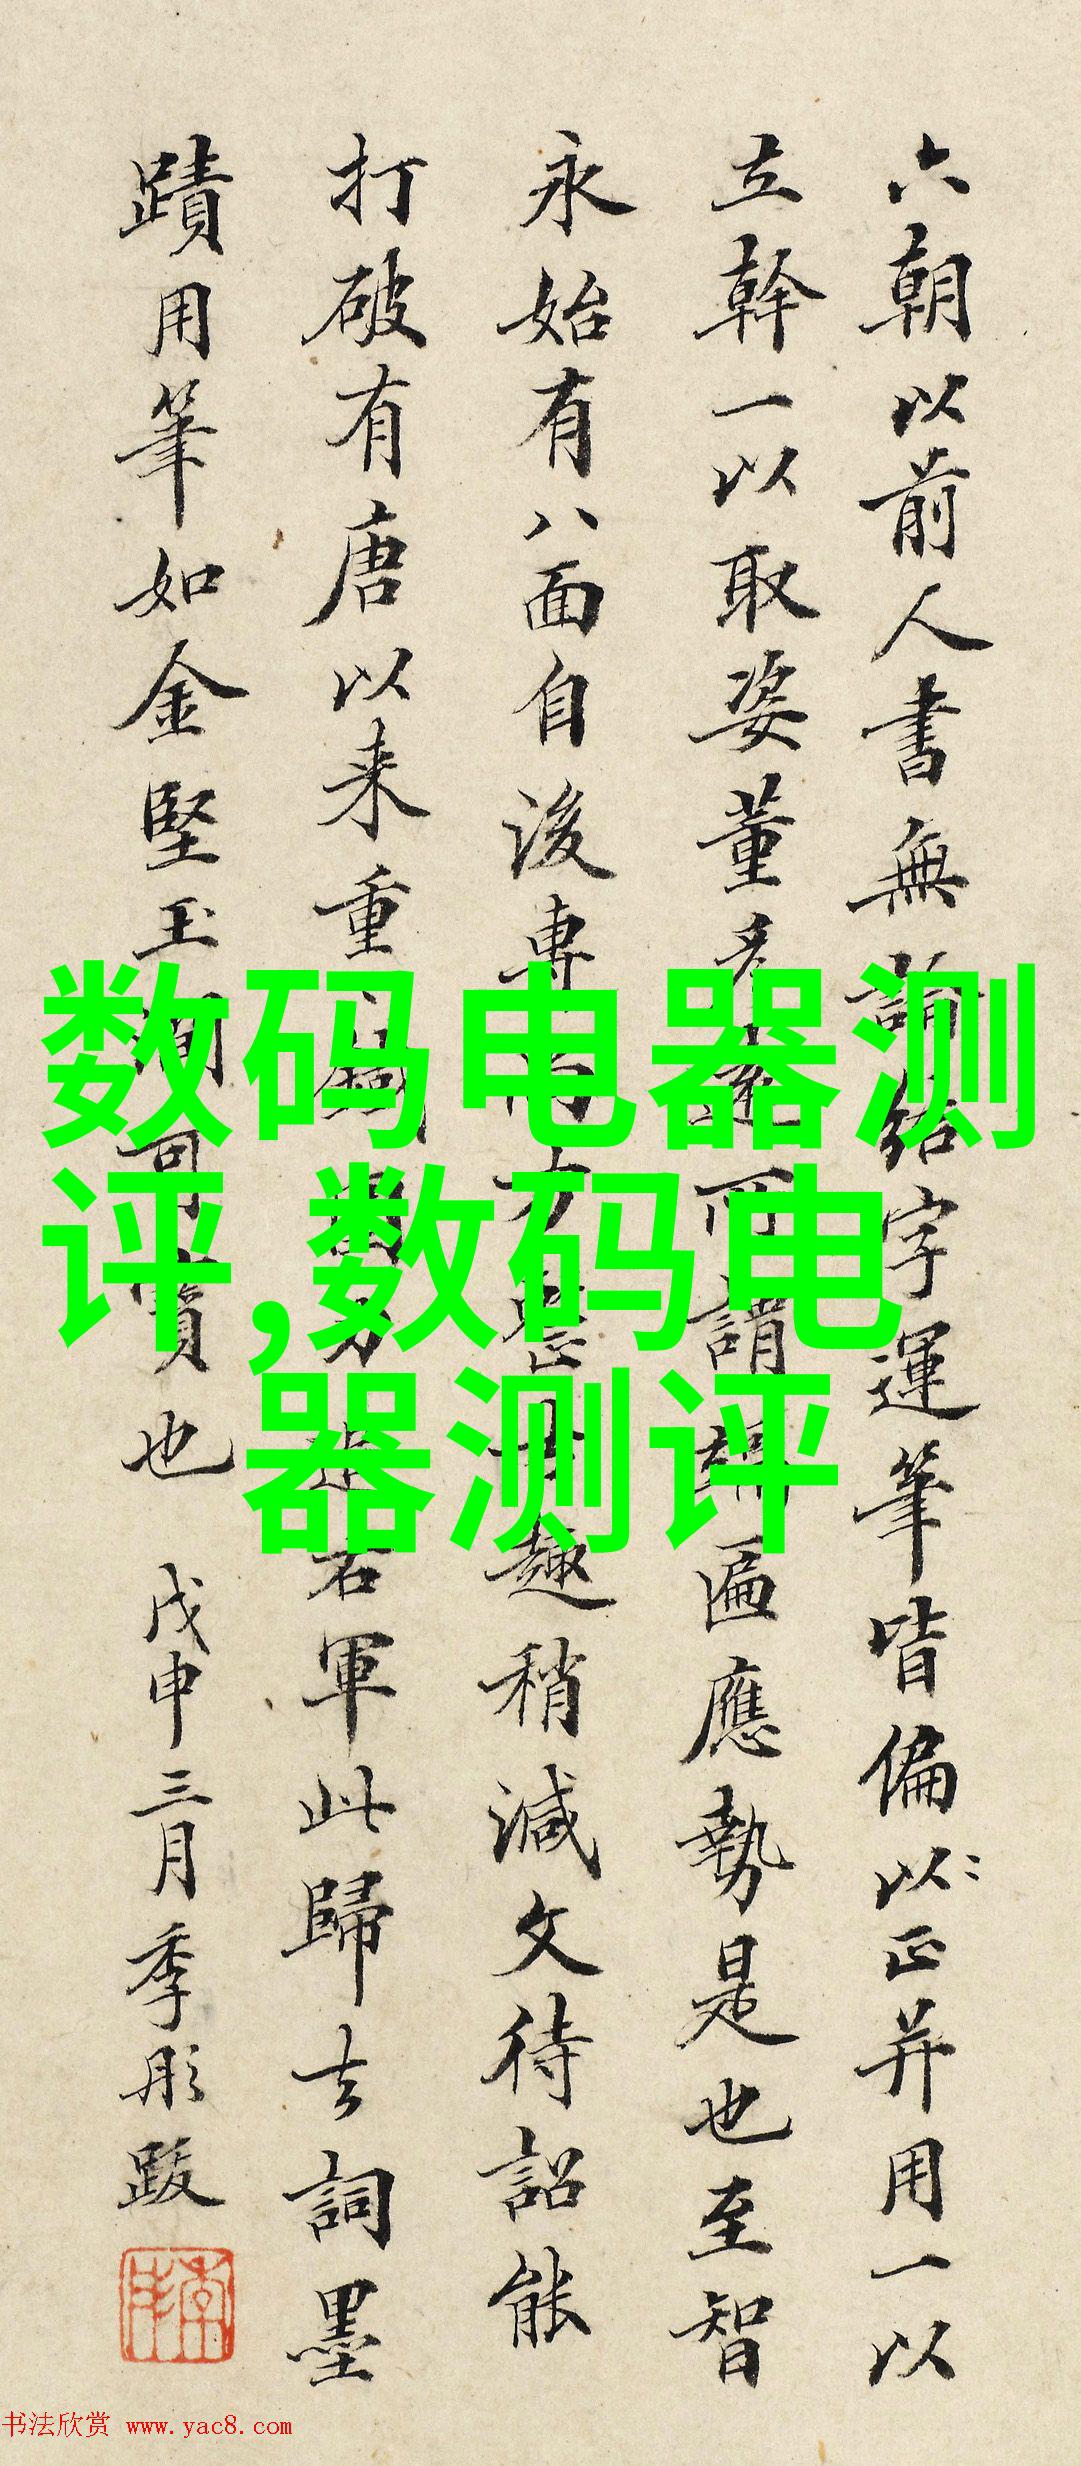 六朝以前人書無論結字運筆皆偏以正并用一以
立幹一以取姿董彥遠所謂 匾應勢是也至智
永始有八面自後專尚方 趣稍減文待詔能
打破有唐以来重 右軍此歸去詞墨
蹟用筆如金堅玉潤可寶也 戊申三月季彤跋
数码电器测
评,数码电
器测评
书法欣赏 www.yac8.com